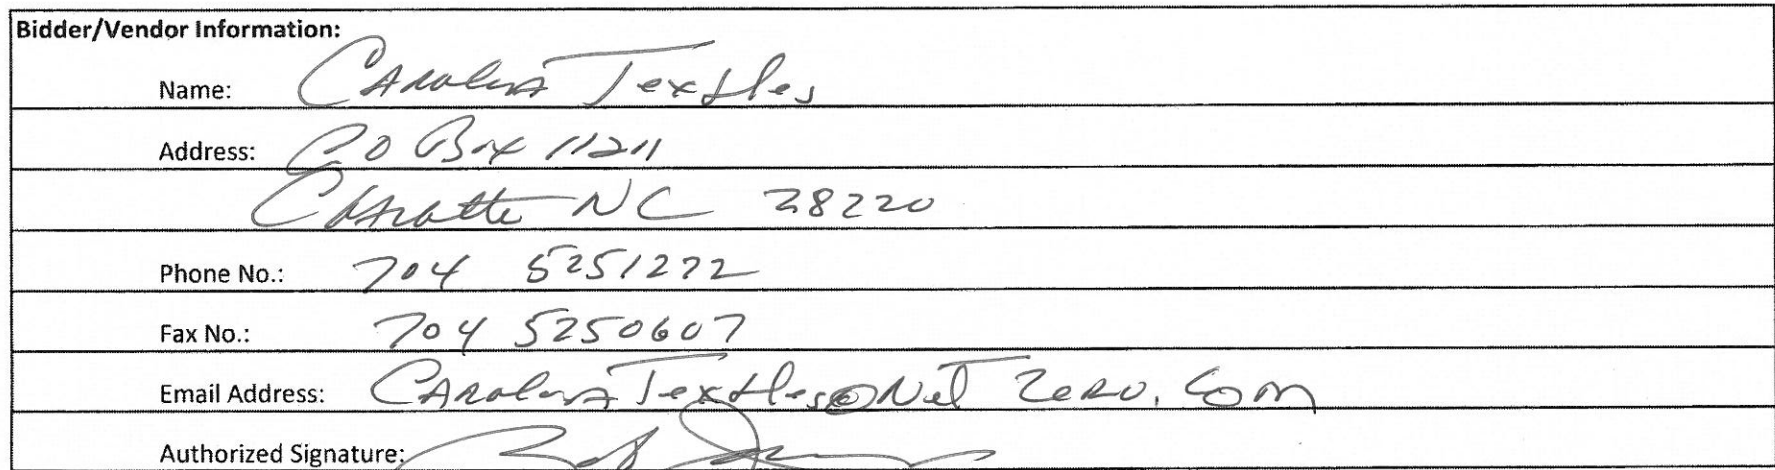 Bidder/Vendor Information:
Name: Carolina Textiles
Address: PO Box 11211
Charlotte NC 28220
Phone No.: 704 5251272
Fax No.: 704 5250607
Email Address: CarolinaTextiles@NetZero.Com
Authorized Signature: